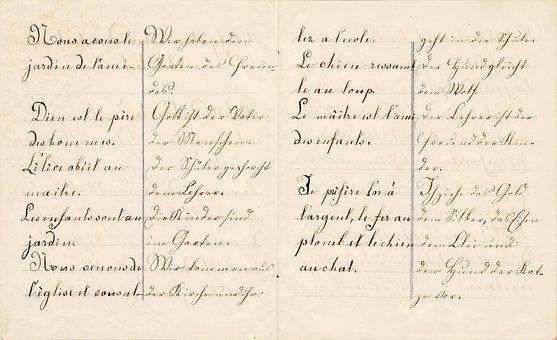 Nous avons le
jardin de l'ami.
Dieu est le père
des hommes.
L'élève obéit au
maître.
Les enfants sont au
jardin.
Nous venons de
l'église et vous al-
Wir haben den
Garten des Freun-
des.
Gott ist der Vater
der Menschen.
Der Schüler gehorcht
dem Lehrer.
Die Kinder sind
im Garten.
Wir kommen aus
der Kirche und ihr
lez à l'école.
Le chien ressemb
le au loup.
Le maître est l'ami
des enfants.
Je préfère l'or à
l'argent, le fer au
plomb et le chien
au chat.
geht in die Schule.
Der Hund gleicht
dem Wolf.
Der Lehrer ist der
Freund der Kin-
der.
Ich ziehe das Gold
dem Silber, das Eisen
dem Blei und
den Hund der Kat-
ze vor.